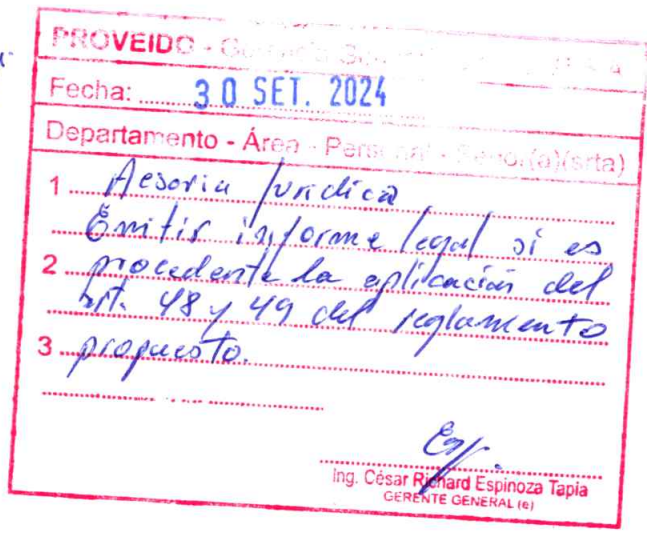 PROVEIDO -
Fecha: 30 SET. 2024
Departamento - Área - Personal - Señor(a)(srta)
1 Asesoria Juridica
Emitir informe legal si es
2 procedente la aplicación del
art. 48 y 49 del reglamento
3 propuesto.
Ing. César Richard Espinoza Tapia
GERENTE GENERAL (e)